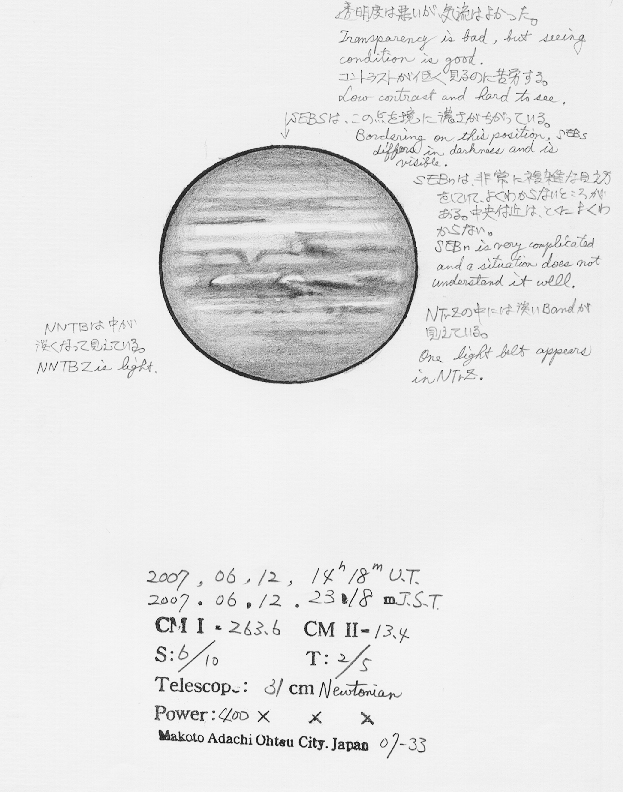 透明度は悪いが、気流はよかった。
Transparency is bad, but seeing
condition is good.
コントラストが低く見るのに苦労する。
Low contrast and hard to see.
SEBSは、この点を境に濃さがちがっている。
Bordering on this position, SEBs
differs in darkness and is
visible.
SEBnは、非常に複雑な見え方
をしていて、よくわからないところが
ある。中央付近は、とくによくわ
からない。
SEBn is very complicated
and a situation does not
understand it well.
NTrZの中には淡いBandが
見えている。
One light belt appears
in NTrZ.
NNTBは中が
淡くなって見えている。
NNTBZ is light.
2007, 06, 12, 14h 18m U.T.
2007. 06. 12. 23 18 m J.S.T.
CM I - 263.6 CM II - 13.4
S: 6/10 T: 2/5
Telescop.: 31 cm Newtonian
Power: 400 × × ×
Makoto Adachi Ohtsu City. Japan 07-33